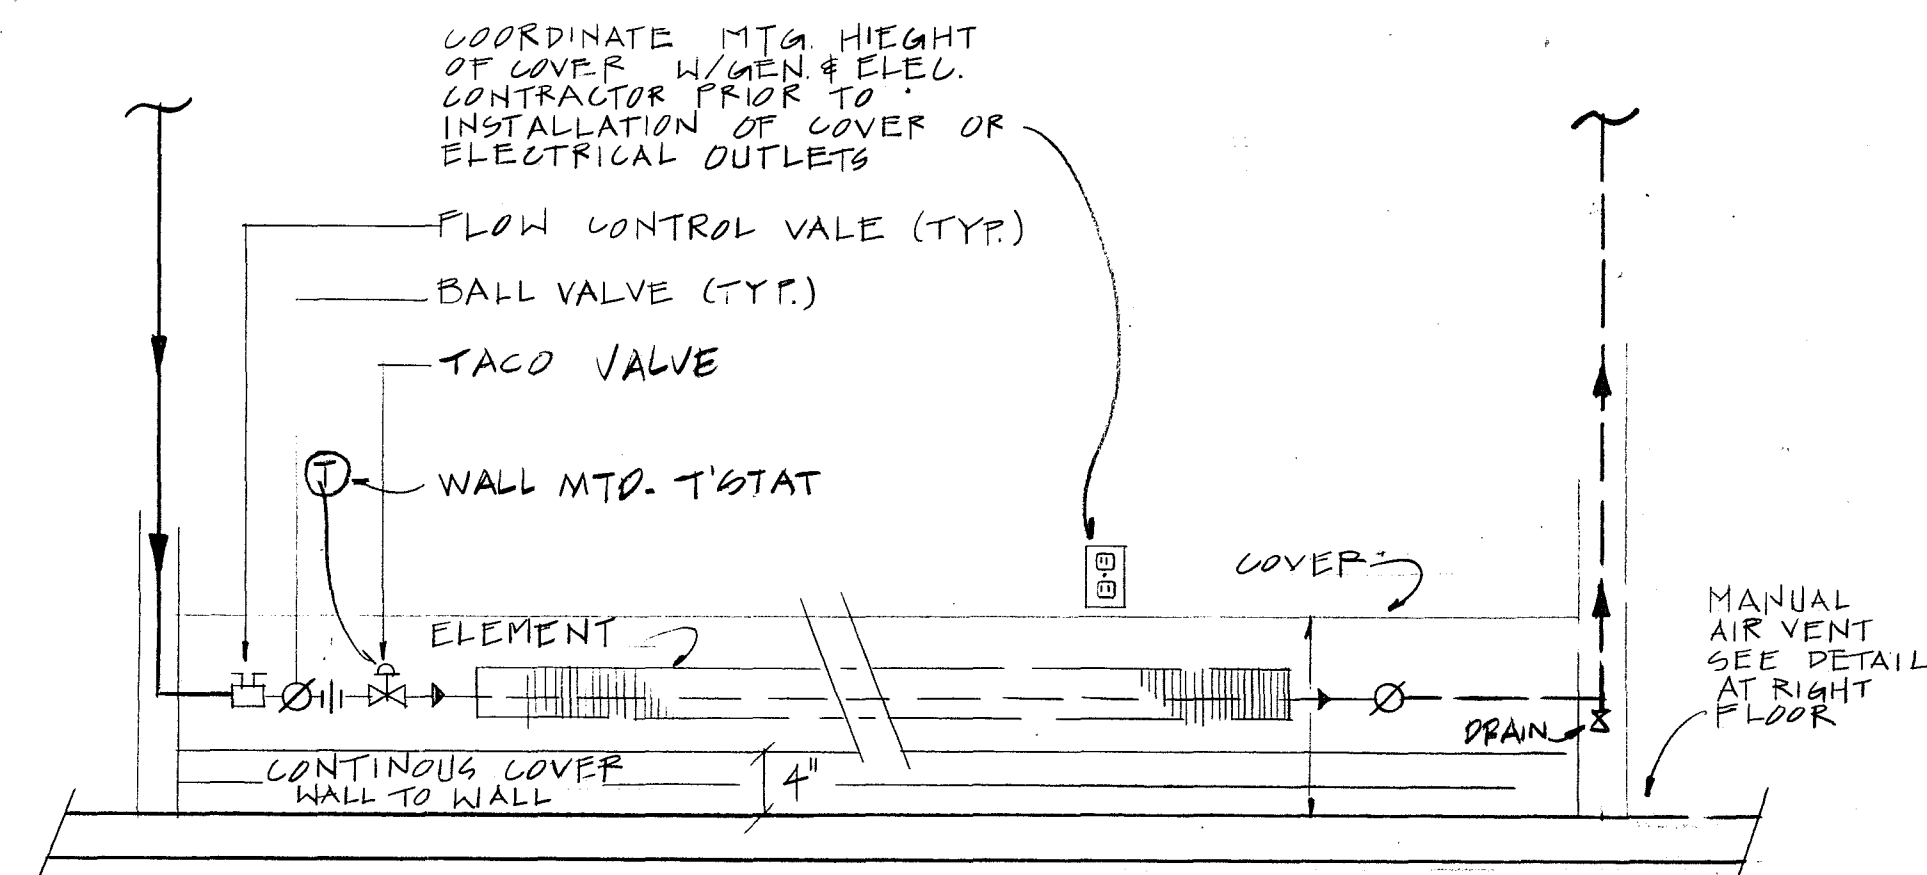 COORDINATE MTG. HIEGHT
OF COVER W/GEN. & ELEC.
CONTRACTOR PRIOR TO
INSTALLATION OF COVER OR
ELECTRICAL OUTLETS
FLOW CONTROL VALE (TYP.)
BALL VALVE (TYP.)
TACO VALVE
T
WALL MTD. T'STAT
COVER
ELEMENT
MANUAL
AIR VENT
SEE DETAIL
AT RIGHT
FLOOR
DRAIN
CONTINOUS COVER
WALL TO WALL
4"